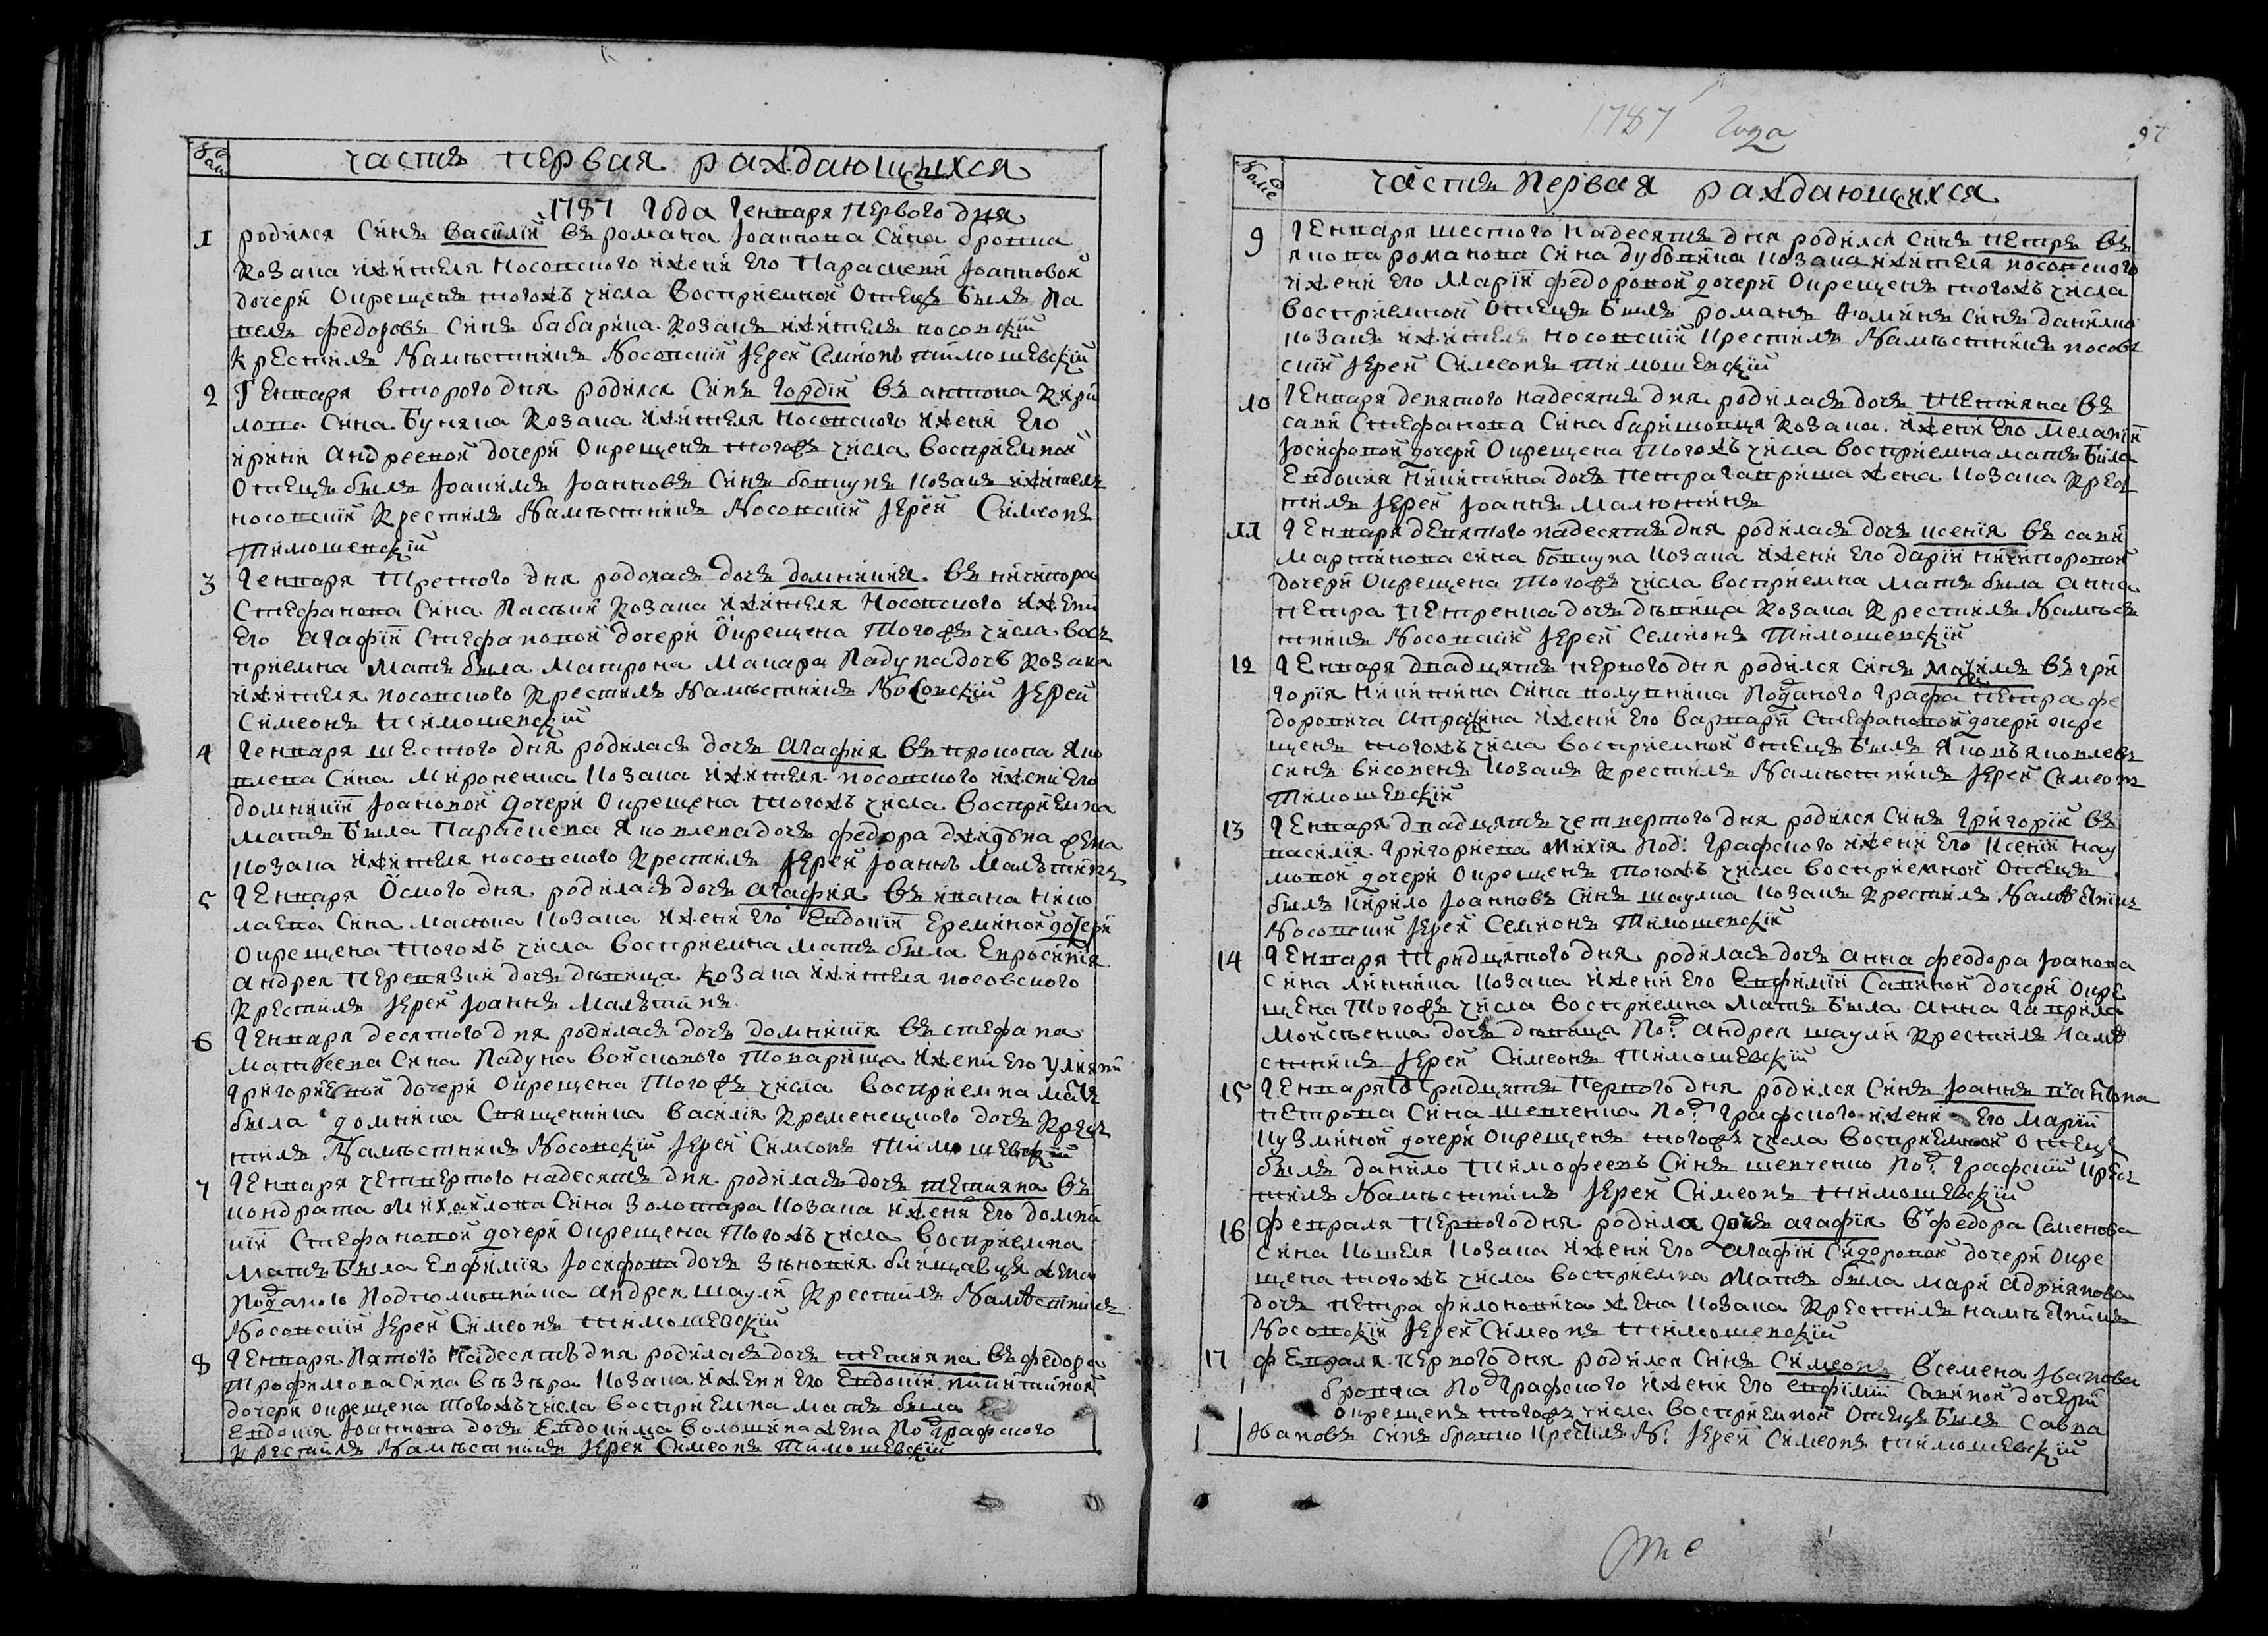 часть первая раждающихся
1787 Года Генваря Первого дня
1 родился Синъ василій въ романа Іоаннова Сина бровка
козака ижителя носовского ижени Его Параскеви Іоанновой
дочери Окрещенъ тогожъ числа восприемной Отецъ билъ Па
велъ федоровъ Синъ бабарика козакъ ижитель носовскій
крестилъ Намѣстникъ Носовскій Іерей Семіонъ тимошевскій
2 Генваря второго дня родился Синъ Гордій въ антона Кири
лова Сина Буняка козака ижителя носовского ижени Его
ирини андреевой дочери Окрещенъ тогожъ числа восприемной
Отецъ билъ Іоакимъ Іоанновъ Синъ козакъ ижитель
носовскій крестилъ Намѣстникъ Носовскій Іерей Симеонъ
Тимошевскій
3 Генваря Третого дня родолась дочь домникия въ никитора
Стефанова Сина козака ижителя Носовского ижени
Его агафіи Стефановой дочери Окрещена Тогожъ числа вос
приемна Мать била Матрона Макара Падуна дочъ козака
ижителя носовского крестилъ Намѣстникъ Носовскій Іерей
Симеонъ тимошевскій
4 Генваря шестого дня родилась дочь агафия въ прокопа Яко
влева Сина Мироненка козака ижителя носовского ижени Его
домникіи Іоановой дочери Окрещена тогожъ числа восприемна
мать била Параскева Яковлева дочь федора жена
козака ижителя носовского крестилъ Іерей Іоаннъ Малютинъ
5 Генваря Осмого дня родилась дочь агафия въ ивана Нико
лаева Сина козака ижени Его Евдокіи Ереминой дочери
Окрещена тогожъ числа восприемна мать била Ефросинія
андрея дочь дѣвица козака ижителя носовского
крестилъ Іерей Іоаннъ Малютинъ
6 Генваря десятого дня родилась дочь домникія въ стефана
матвеева Сина Падуна войскового Товарища ижени Его Улияни
Григориевой дочери Окрещена Тогожъ числа восприемна мать
била домника Священника василія Кременецкого дочь Крес
тилъ Намѣстникъ Носовскій Іерей Симеонъ Тимошевскій
7 Генваря четвертого надесять дня родилась дочь тетияна въ
кондрата Михайлова Сина Золотара козака ижени Его домни
кіи Стефановой дочери Окрещена Тогожъ числа восприемна
Мать била Евфимія Іосифова дочь жена
подданого андрея шаули Крестилъ Намѣстникъ
Носовскій Іерей Симеонъ тимошевскій
8 Генваря Пятого надесять дня родилась дочь тетияна въ федора
Трофимова Сина козака ижени Его Евдокіи никитиной
дочери окрещена тогожъ числа восприемна мать била
Евдокія Іоаннова дочь Евдокима волошина жена Под Графского
Крестилъ Намѣстникъ Іерей Симеонъ Тимошевскій
1787 Года
97
часть Первая раждающихся
9 Генваря шестого надесять дня родился Синъ петръ въ
якова романова Сина дубовика козака ижителя носовского
ижени Его Маріи федоровой дочери Окрещенъ тогожъ числа
восприемной Отецъ билъ романъ Фоминъ Синъ данилко
козакъ ижитель носовскій крестилъ Намѣстникъ носов
скій Іерей Симеонъ Тимошевскій
10 Генваря девятого надесять дня родилась дочь Тетияна въ
сави Стефанова Сина козака ижени Его Меланіи
Іосифовой дочери Окрещена Тогожъ числа восприемна мать била
Евдокия Никитина дочь Петра Гавриша жена козака Крес
тилъ Іерей Іоаннъ Малютинъ
11 Генваря девятого надесять дня родилась дочь ксенія въ сави
Мартинова сина козака ижени Его даріи никифоровой
дочери Окрещена Тогожъ числа восприемна мать била анна
петра Петренка дочь дѣвица козака Крестилъ Намѣс
тникъ Носовскій Іерей Семионъ Тимошевскій
12 Генваря двадцять первого дня родился Синъ Максимъ въ гри
горія Никитина Сина полупника Подданого Графа Петра фе
доровича апраксина ижени Его варвари Стефановой дочери окре
щенъ тогожъ числа восприемной отецъ билъ Яковъ яковлевъ
синъ козакъ Крестилъ Намѣстникъ Іерей Симеонъ
Тимошевскій
13 Генваря двадцять четвертого дня родился Синъ Григорій въ
василія Григориева Михія Под: Графского ижени Его Ксеніи нау
мовой дочери Окрещенъ Тогожъ числа восприемной Отецъ
билъ Кирило Іоанновъ Синъ шаулка козакъ Крестилъ Намѣстникъ
Носовскій Іерей Семионъ Тимошевскій
14 Генваря Тридцятого дня родилась дочь анна феодора Іоанова
сина козака ижени Его Евфиміи Савиной дочери Окре
щена Тогожъ числа восприемна Мать била анна Гаврила
дочь дѣвица Под андрея шаули Крестилъ Намѣ
стникъ Іерей Симеонъ Тимошевскій
15 Генваря Тридцять Первого дня родился Синъ Іоаннъ в антона
петрова Сина шевченка Под Графского ижени Его Маріи
кузминой дочери Окрещенъ тогожъ числа восприемной отецъ
билъ данило тимофеевъ Синъ шевченко Под Графскій крес
тилъ Намѣстникъ Іерей Симеонъ тимошевскій
16 Февраля первого дня родила дочь агафія в федора Семенова
Сина Кошеля козака ижени Его агафіи Сидоровой дочери окре
щена тогожъ числа восприемна Мать била мари адриянова
дочь петра филоновича жена козака Крестилъ намѣстникъ
Носовскій Іерей Симеонъ тимошевскій
17 Февраля первого дня родился Синъ Симеонъ в семена Иванова
бровка Под Графского ижени Его евфиміи Савиной дочери
окрещенъ тогожъ числа восприемной Отецъ билъ Савка
Ивановъ Синъ бровко Крестилъ Н: Іерей Симеонъ тимошевскій